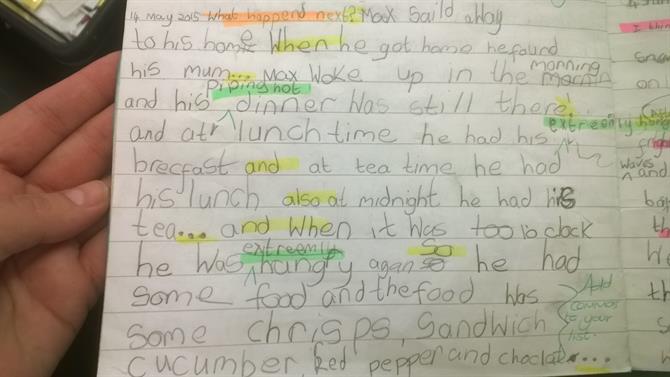 14 May 2015 What happend next? Max Saild away
to his home When he got home he found
his mum... Max Woke up in the morning
and his piping hot dinner Was still there!
and at lunch time he had his
extreemly
brecfast and at tea time he had
his lunch also at midnight he had his
tea... and When it Was too o clock
he Was extreemly hungry agan so he had
Some food and the food Was
Some chrisps, Sandwich
cucumber, Red pepper and choclate....
Add
commas
to your
list.
I thin
on
waves and